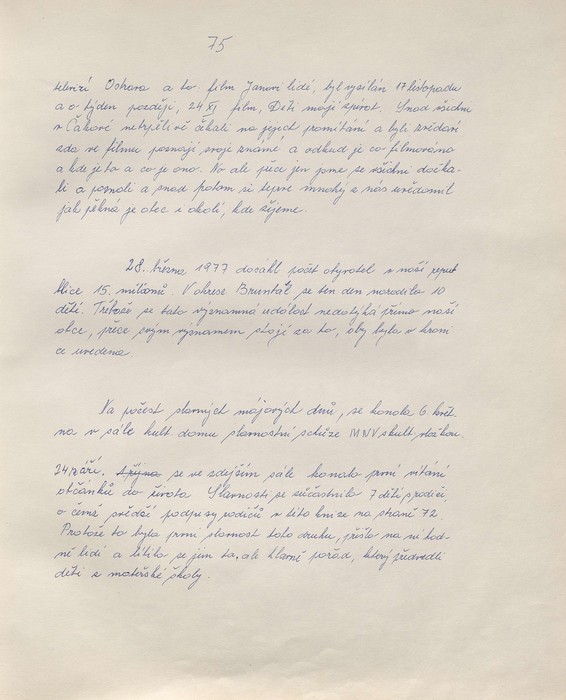 75
televizí Ostrava a to film Janovi lidé, byl vysílán 17 listopadu
a o týden později, 24 XI film, Děti mojí spirot. Snad všichni
v Čakové netrpělivě čekali na jejich promítání a byli zvědaví
zda ve filmu poznají svoje známé a odkud je co filmováno
a kde je to a co je ono. No ale přece jen jsme se všichni dočka-
li a poznali a snad potom si teprve mnohý z nás uvědomil
jak pěkná je obec i okolí, kde žijeme.
28. března 1977 dosáhl počet obyvatel v naší repub
blice 15. milionů. V okrese Bruntál se ten den narodilo 10
dětí. Třebaže se tato významná událost nedotýká přímo naší
obce, přece svým významem stojí za to, aby byla v kroni
ce uvedena.
Na počest slavných májových dnů, se konala 6. květ.
na v sále kult. domu slavnostní schůze MNV s kult. vložkou.
24 září. se ve zdejším sále konalo první vítání
občánků do života Slavnosti se súčastnilo 7 dětí s rodiči,
o čemž svědčí podpisy rodičů v této knize na straně 72.
Protože to byla první slavnost toho druhu, přišlo na ni hod-
ně lidí a líbilo se jim to, ale hlavně pořad, který předvedli
děti z mateřské školy.